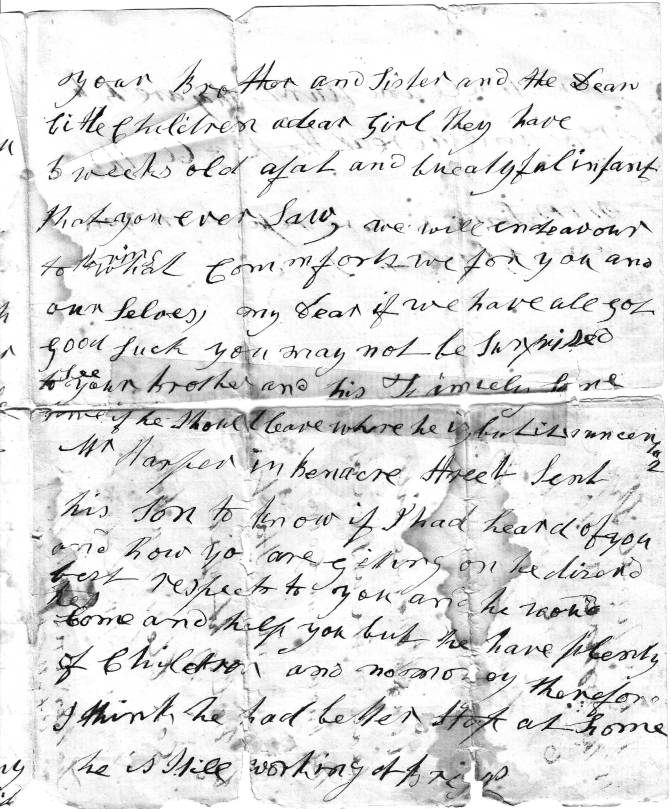 your Brother and Sister and the Dear
little Children a dear girl they have
5 weeks old a fat and bueatyful infant
that you ever Saw, we will endeavour
to bring what Commforts we for you and
our Selves, my Dear if we have ale got
good luck you may not be Surprised
to See your brother and his
some if he Should leave where he is but it is
Mr Harper in Benacre Street Sent
his Son to know if I had heard of you
and how yo are giting on he dizerd
best respects to you and he
Come and help you but he have plenty
of Children and no money therefore
I think he had better Stop at home
he is Still working at